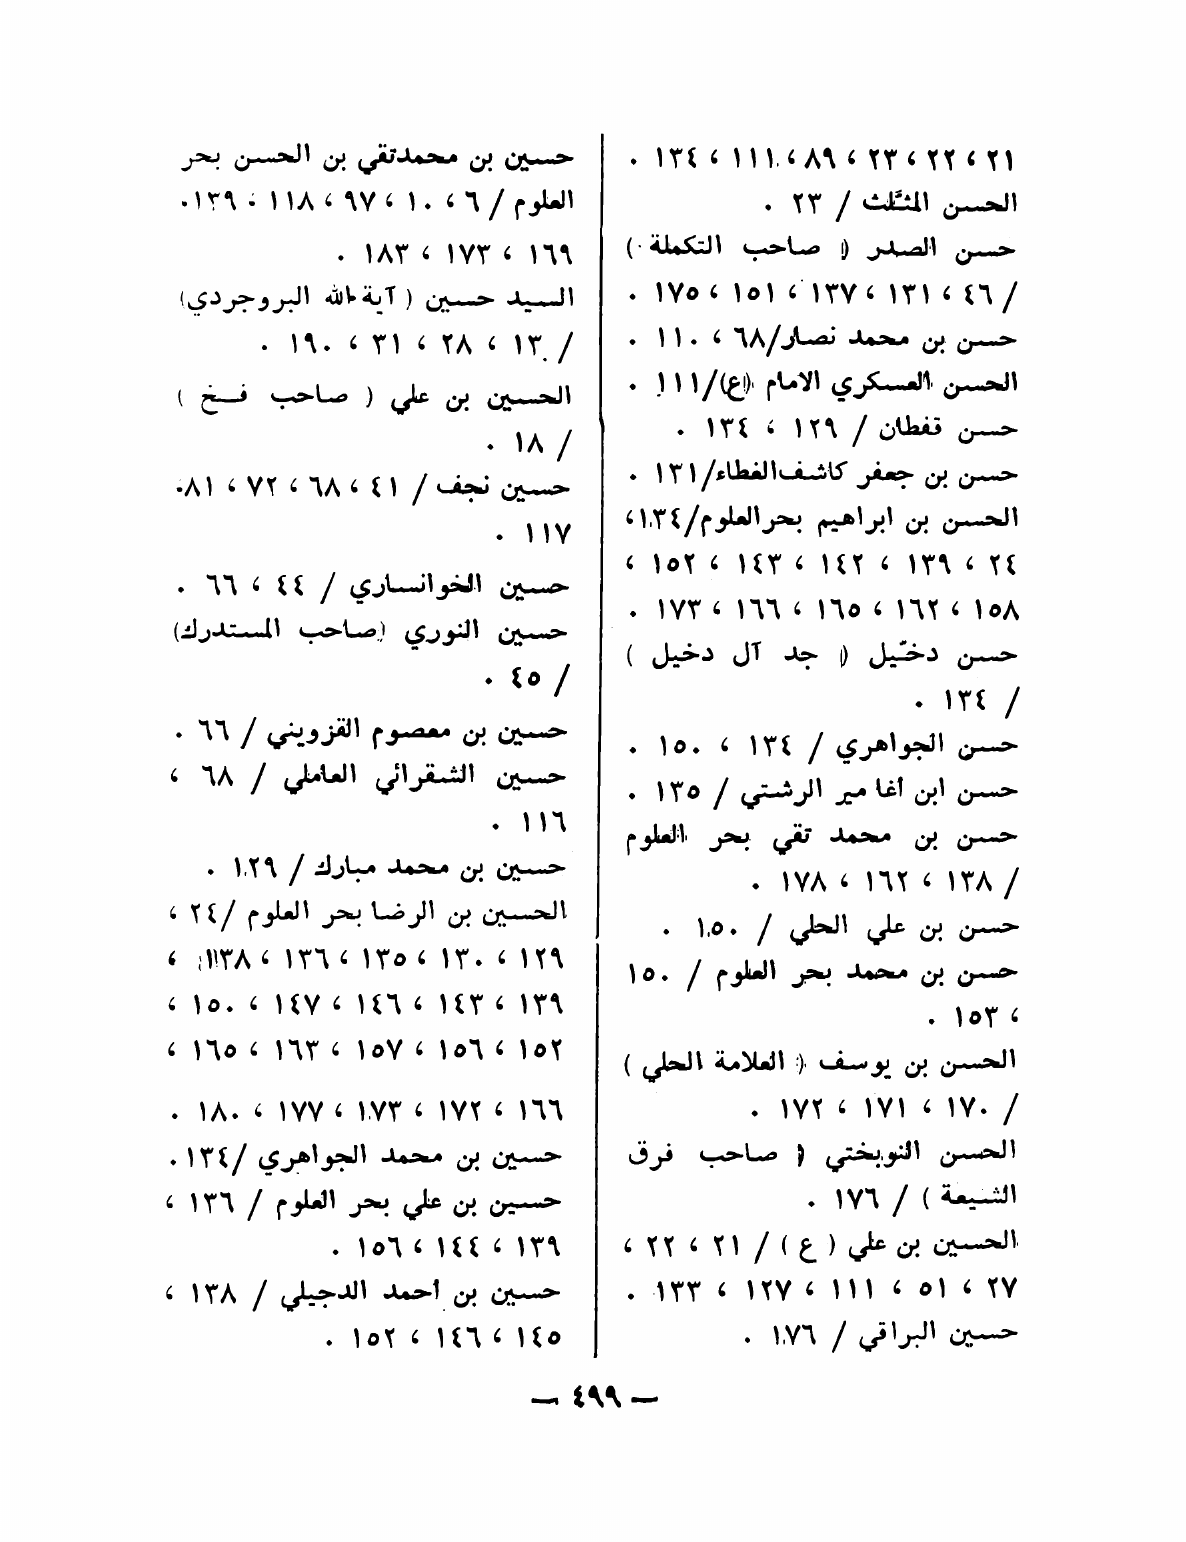 ٢١ ، ٢٢ ، ٢٣ ، ٨٩ ، ١١١ ، ١٣٤ .
الحسن المثلَّث / ٢٣ .
حسن الصدر ( صاحب التكملة )
/ ٤٦ ، ١٣١ ، ١٣٧ ، ١٥١ ، ١٧٥ .
حسن بن محمد نصار/٦٨ ، ١١٠ .
الحسن العسكري الامام (ع)/١١١ .
حسن قفطان / ١٢٩ ، ١٣٤ .
حسن بن جعفر كاشف الغطاء/١٣١ .
الحسن بن ابراهيم بحرالعلوم/١٣٤،
٢٤ ، ١٣٩ ، ١٤٢ ، ١٤٣ ، ١٥٢ ،
١٥٨ ، ١٦٢ ، ١٦٥ ، ١٦٦ ، ١٧٣ .
حسن دخيّل ( جد آل دخيل )
/ ١٣٤ .
حسن الجواهري / ١٣٤ ، ١٥٠ .
حسن ابن أغا مير الرشتي / ١٣٥ .
حسن بن محمد تقي بحر العلوم
/ ١٣٨ ، ١٦٢ ، ١٧٨ .
حسن بن علي الحلي / ١٥٠ .
حسن بن محمد بحر العلوم / ١٥٠
، ١٥٣ .
الحسن بن يوسف ( العلامة الحلي )
/ ١٧٠ ، ١٧١ ، ١٧٢ .
الحسن النوبختي ( صاحب فرق
الشيعة ) / ١٧٦ .
الحسين بن علي ( ع ) / ٢١ ، ٢٢ ،
٢٧ ، ٥١ ، ١١١ ، ١٢٧ ، ١٣٣ .
حسين البراقي / ١٧٦ .
حسين بن محمدتقي بن الحسن بحر
العلوم / ٦ ، ١٠ ، ٩٧ ، ١١٨ ، ١٣٩.
١٦٩ ، ١٧٣ ، ١٨٣ .
السيد حسين ( آية الله البروجردي)
/ ١٣ ، ٢٨ ، ٣١ ، ١٩٠ .
الحسين بن علي ( صاحب فخ )
/ ١٨ .
حسين نجف / ٤١ ، ٦٨ ، ٧٢ ، ٨١.
١١٧ .
حسين الخوانساري / ٤٤ ، ٦٦ .
حسين النوري (صاحب المستدرك)
/ ٤٥ .
حسين بن معصوم القزويني / ٦٦ .
حسين الشقرائي العاملي / ٦٨ ،
١١٦ .
حسين بن محمد مبارك / ١٢٩ .
الحسين بن الرضا بحر العلوم /٢٤ ،
١٢٩ ، ١٣٠ ، ١٣٥ ، ١٣٦ ، ١٣٨ ،
١٣٩ ، ١٤٣ ، ١٤٦ ، ١٤٧ ، ١٥٠ ،
١٥٢ ، ١٥٦ ، ١٥٧ ، ١٦٣ ، ١٦٥ ،
١٦٦ ، ١٧٢ ، ١٧٣ ، ١٧٧ ، ١٨٠ .
حسين بن محمد الجواهري /١٣٤ .
حسين بن علي بحر العلوم / ١٣٦ ،
١٣٩ ، ١٤٤ ، ١٥٦ .
حسين بن أحمد الدجيلي / ١٣٨ ،
١٤٥ ، ١٤٦ ، ١٥٢ .
— ٤٩٩ —